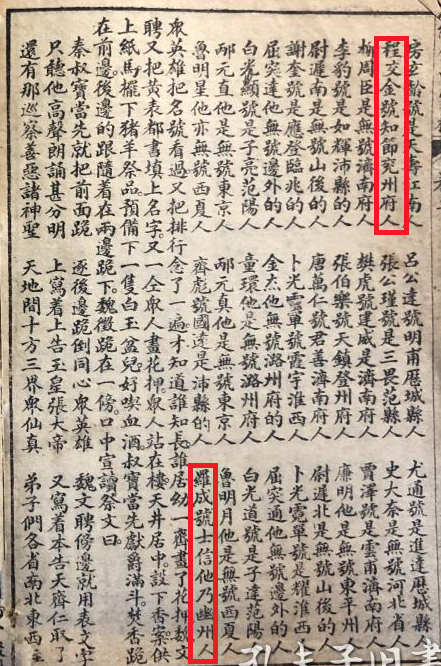 房玄齡號是天壽江南人　呂公達號明甫歷城縣人　尤通號是進達歷城縣人
程交金號知節兗州府人　張公瑾號是三畏范縣人　史大奈是無號河北省人
柳周臣是無號濟南府人　樊虎號建威是濟南府人　賈潤號是雲甫濟南府人
李豹號是如輝沛縣的人　張伯樂號天鎮登州府人　廉明他是無號東平州人
尉遲南是無號山後的人　唐萬仁號君善濟南府人　尉遲北是無號山後的人
謝奎號是應登臨兆的人　卜光雲單號霞宇淮西人　卜光霓單號是耀淮西人
屈突達他無號邊外的人　金杰他無號潞州府人　屈突通他無號邊外的人
白光顯號是子亮范陽人　童環他是無號潞州府人　白光道號是子達范陽人
邴元直他是無號東京人　邴元真他是無號東京人　魯明月他是無號西夏人
魯明星他亦無號西夏人　齊彪號國達是沛縣的人　羅成號士信他乃幽州人
眾英雄把名號看過又把排行念了一遍才知道誰知長誰居幼一齊畫了花押魏文
聘又把黃表都書填上名字。又一仝眾人畫花押。眾人站在樓天井居中。設下香案供
上紙馬擺下猪羊祭品預備下一隻白玉盆兒好喫血酒。叔寶當先獻爵滿斗。焚香跪
在前邊後邊的跟隨着在兩邊跪下。魏徵跪在一傍。口中宣讀祭文曰
秦叔寶當先就把前面跪　逐後邊跪倒同心眾英雄　魏文聘傍邊就用表文字
只聽他高聲朗誦甚分明　上寫着上告玉皇張大帝　又寫着本告天齊仁
還有那巡察善惡諸神聖　天地間十方三界眾仙真　弟子們各省南北東西至
孔夫子旧书